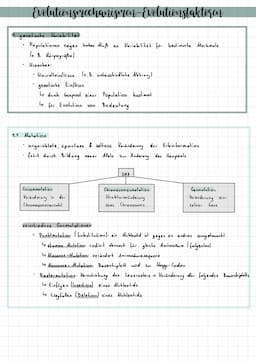 Evolutionsmechanismen-Evolutionsfaktoren
1. genetische Variabilität
• Populationen zeigen hohes Maß an Variabilität für bestimmte Merkmale
(z.B. Körpergröße)
• Ursachen:
• Umwelteinflüsse (z.B. unterschiedliche Nahrung)
• genetische Einflüsse
↳ durch Genpool einer Population bestimmt
↳ für Evolution von Bedeutung
1.1 Mutation
• ungerichtete, spontane & seltene Veränderung der Erbinformation
• führt durch Bildung neuer Allele zur Änderung des Genpools
Genommutation
Veränderung in der
Chromosomenanzahl
Chromosomenmutation
Strukturveränderung
eines Chromosoms
Genmutation
Veränderung ein-
zelner Gene
verschiedene Genmutationen:
• Punktmutation (Substitution): ein Nukleotid ist gegen ein anderes ausgetauscht
↳ stumme Mutation: codiert dennoch für gleiche Aminosäure (folgenlos)
↳ Missense-Mutation: verändert Aminosäuresequenz
↳ Nonsense-Mutation: Basentriplett wird zu Stopp-Codon
• Rastermutation: Verschiebung des Leserasters → Veränderung der folgenden Basentripletts
↳ Einfügen (Insertion) eines Nukleotids
↳ Wegfallen (Deletion) eines Nukleotids